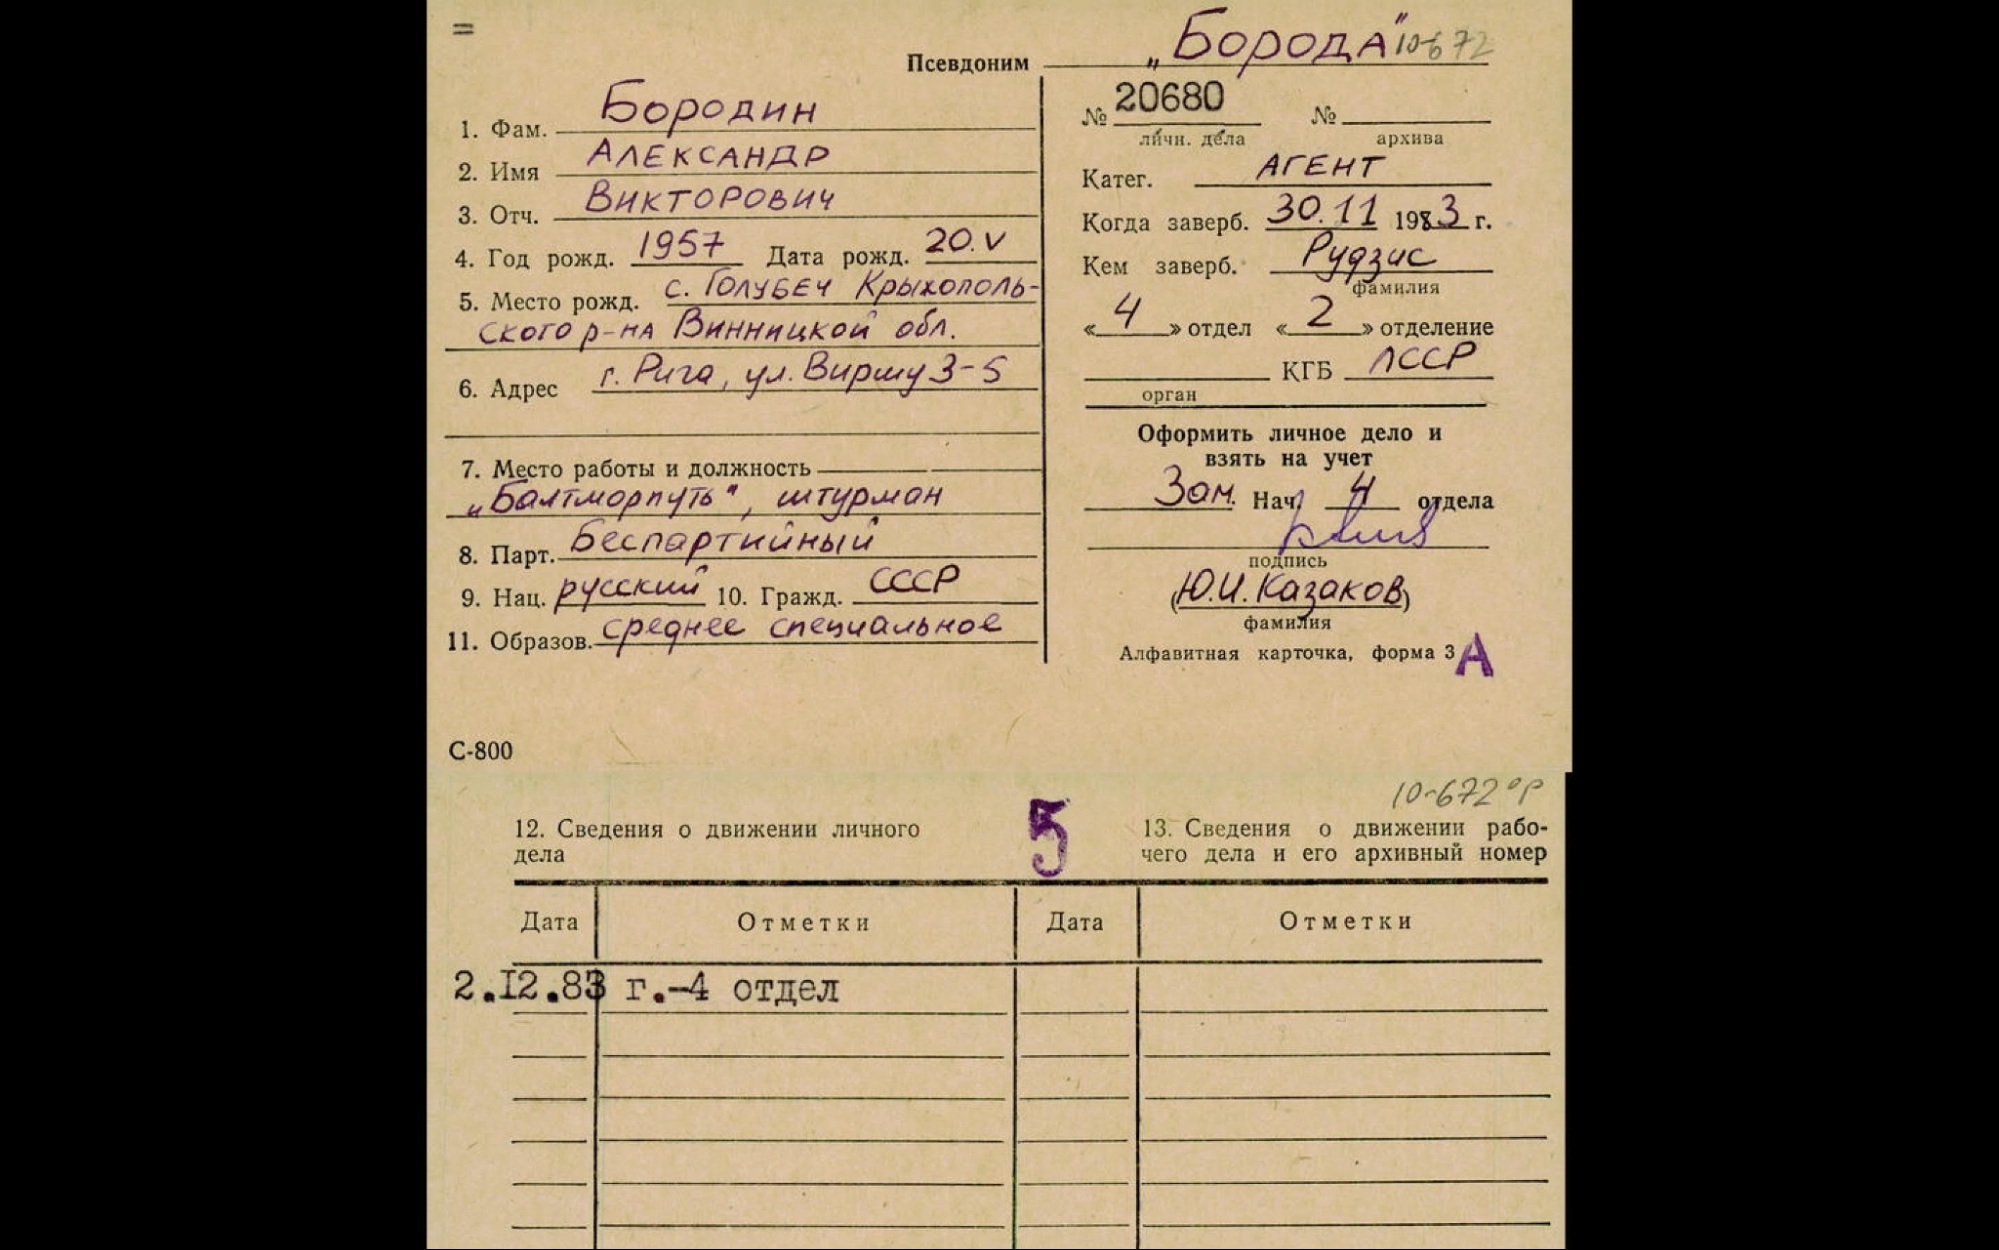 =
Псевдоним „Борода" 10-672
1. Фам. Бородин
2. Имя Александр
3. Отч. Викторович
4. Год рожд. 1957 Дата рожд. 20.V
5. Место рожд. с. Голубеч Крыхополь-
ского р-на Винницкой обл.
6. Адрес г. Рига, ул. Виршу 3-5
7. Место работы и должность
„Балтморпуть", штурман
8. Парт. Беспартийный
9. Нац. русский 10. Гражд. СССР
11. Образов. среднее специальное
№ 20680 №
личн. дела архива
Катег. АГЕНТ
Когда заверб. 30.11 1983 г.
Кем заверб. Рудзис
фамилия
« 4 » отдел « 2 » отделение
КГБ ЛССР
орган
Оформить личное дело и
взять на учет
Зам. Нач. 4 отдела
подпись
(Ю.И. Казаков)
фамилия
Алфавитная карточка, форма 3 А
С-800
10-672 ор
12. Сведения о движении личного
дела
5
13. Сведения о движении рабо-
чего дела и его архивный номер
Дата Отметки Дата Отметки
2.I2.83 г.-4 отдел